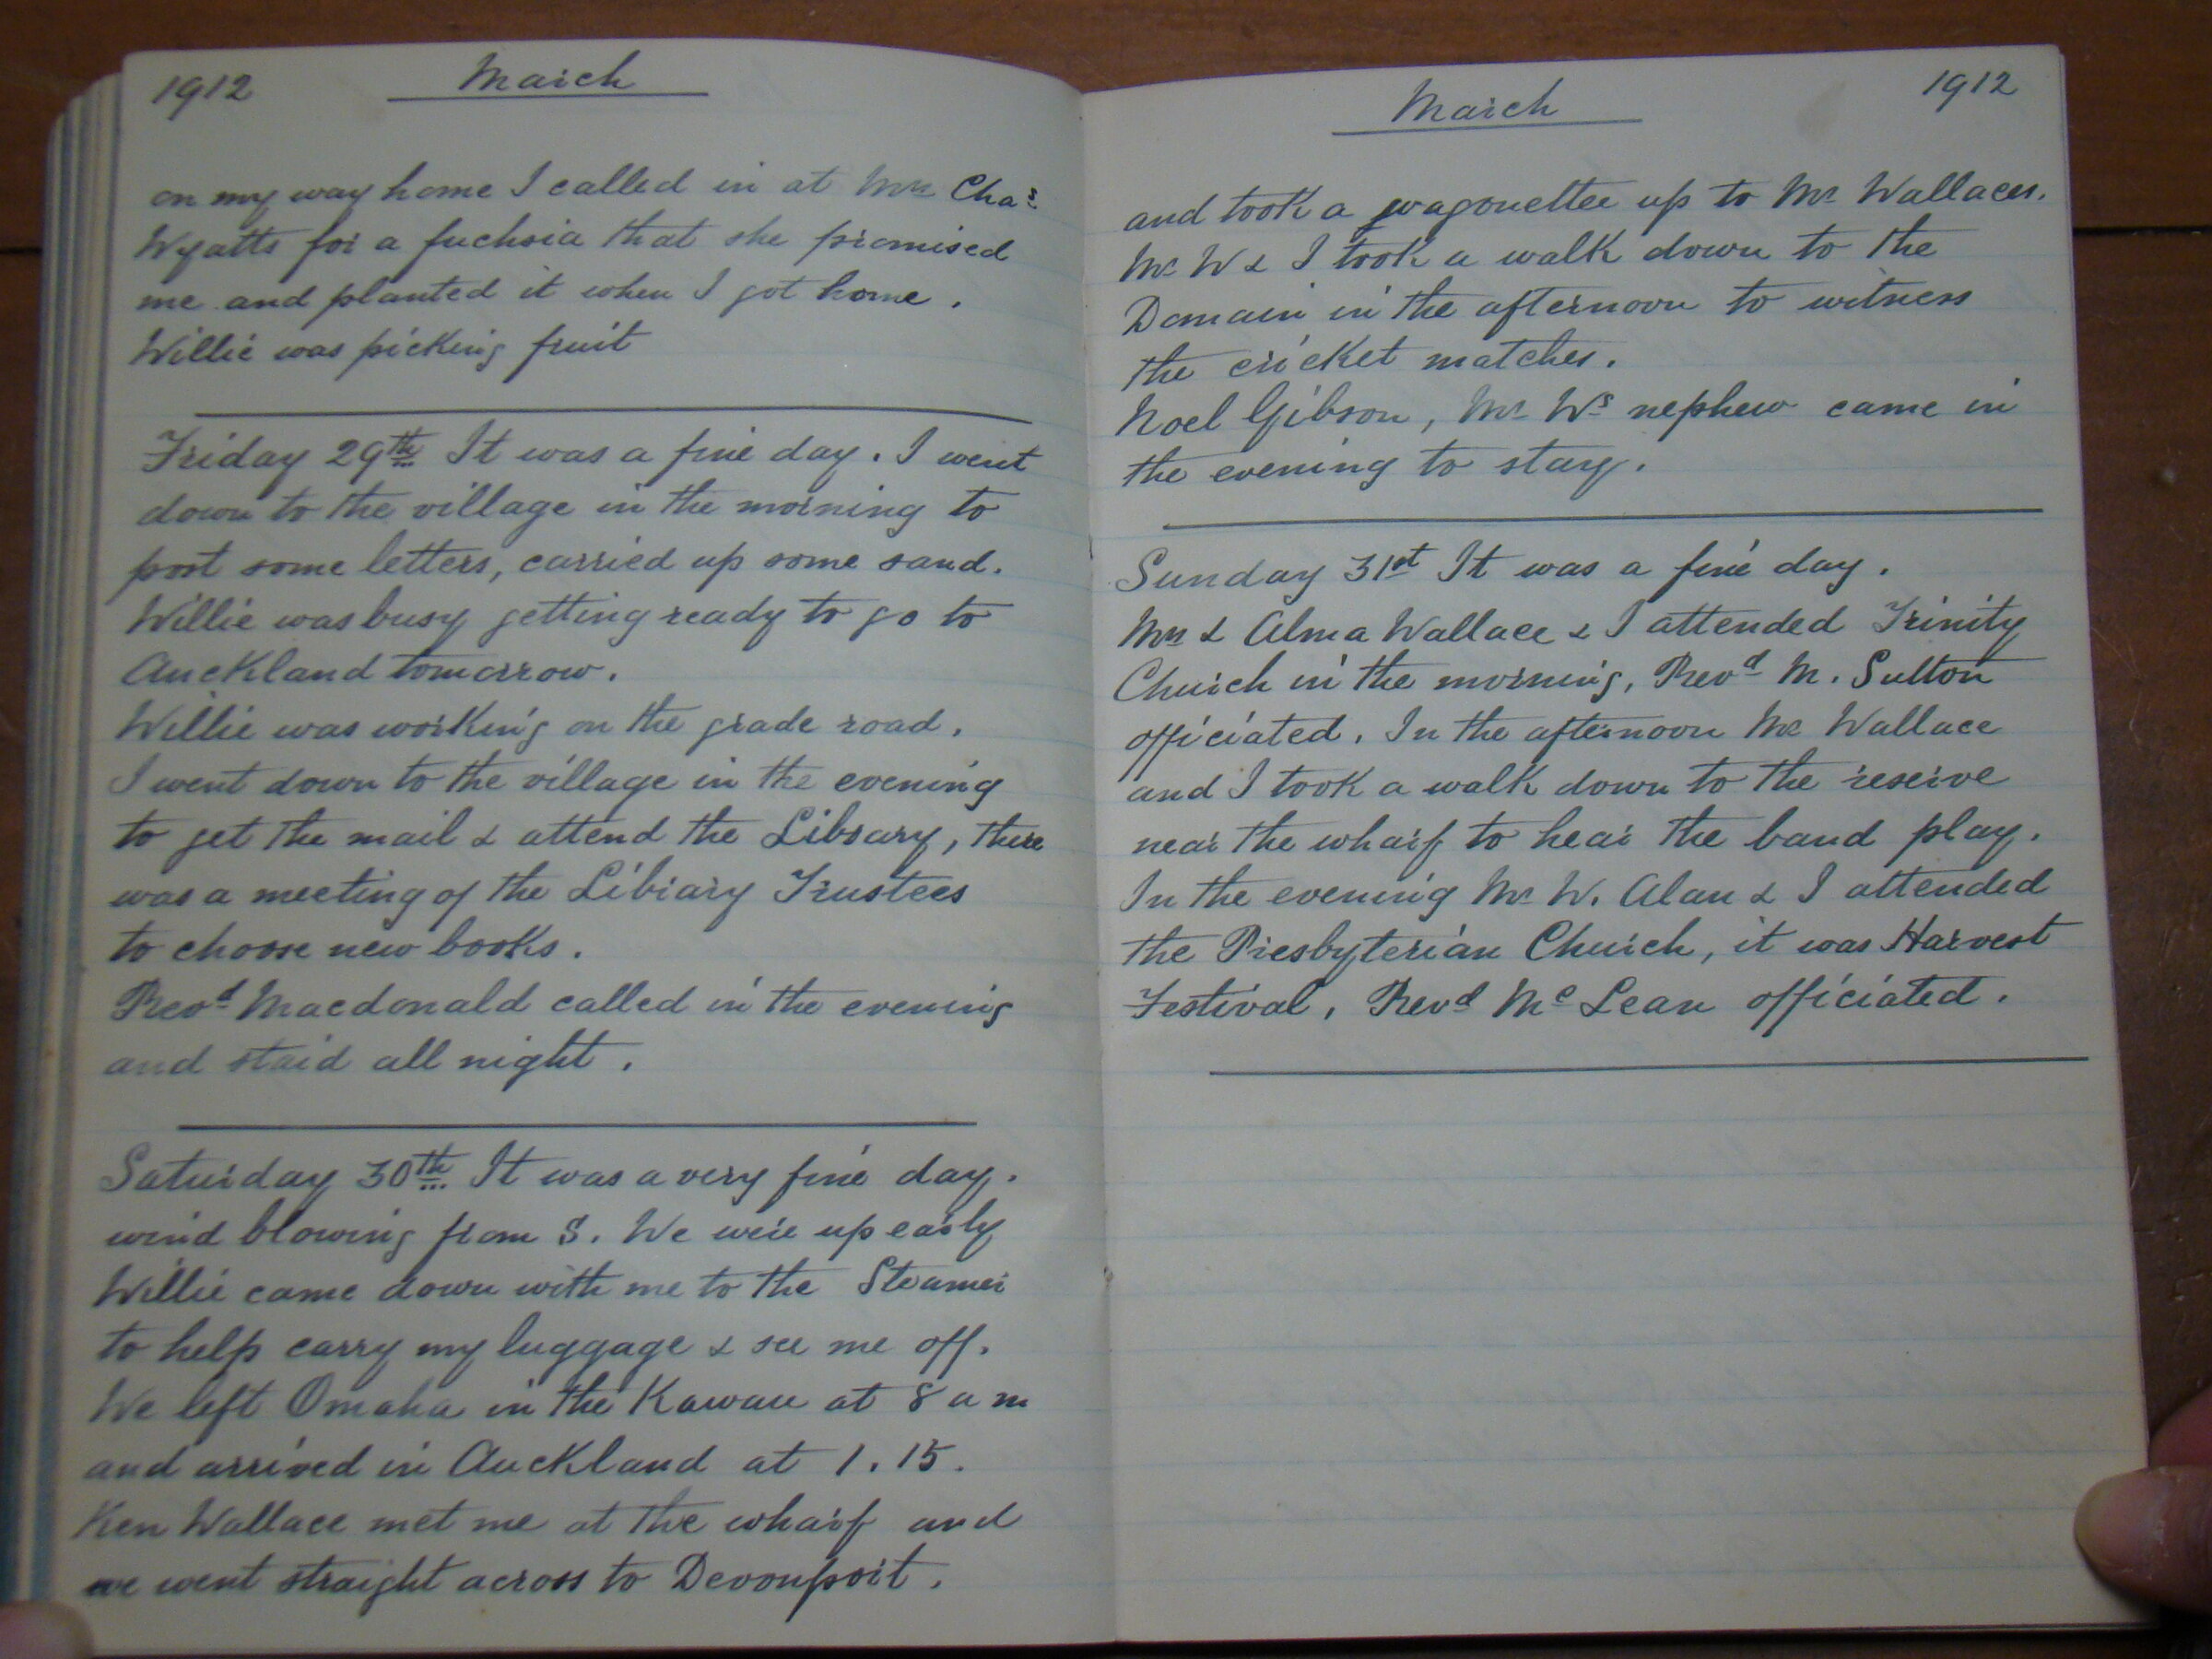 1912 March
on my way home I called in at Mrs Chas.
Wyatts for a fuchsia that she promised
me and planted it when I got home.
Willie was picking fruit
Friday 29th It was a fine day. I went
down to the village in the morning to
post some letters, carried up some sand.
Willie was busy getting ready to go to
Auckland tomorrow.
Willie was working on the grade road.
I went down to the village in the evening
to get the mail & attend the Library, there
was a meeting of the Library Trustees
to choose new books.
Revd Macdonald called in the evening
and staid all night.
Saturday 30th It was a very fine day.
wind blowing from S. We were up early
Willie came down with me to the Steamer
to help carry my luggage & see me off.
We left Omaha in the Kawau at 8 a m
and arrived in Auckland at 1.15.
Ken Wallace met me at the wharf and
we went straight across to Devonport.
March 1912
and took a wagonettee up to Mr Wallaces.
Mr W & I took a walk down to the
Domain in the afternoon to witness
the cricket matches.
Noel Gibson, Mr Ws nephew came in
the evening to stay.
Sunday 31st It was a fine day.
Mrs & Alma Wallace & I attended Trinity
Church in the morning, Revd M. Sulton
officiated. In the afternoon Mr Wallace
and I took a walk down to the reserve
near the wharf to hear the band play.
In the evening Mr W. Alan & I attended
the Presbyterian Church, it was Harvest
Festival, Revd McLean officiated.